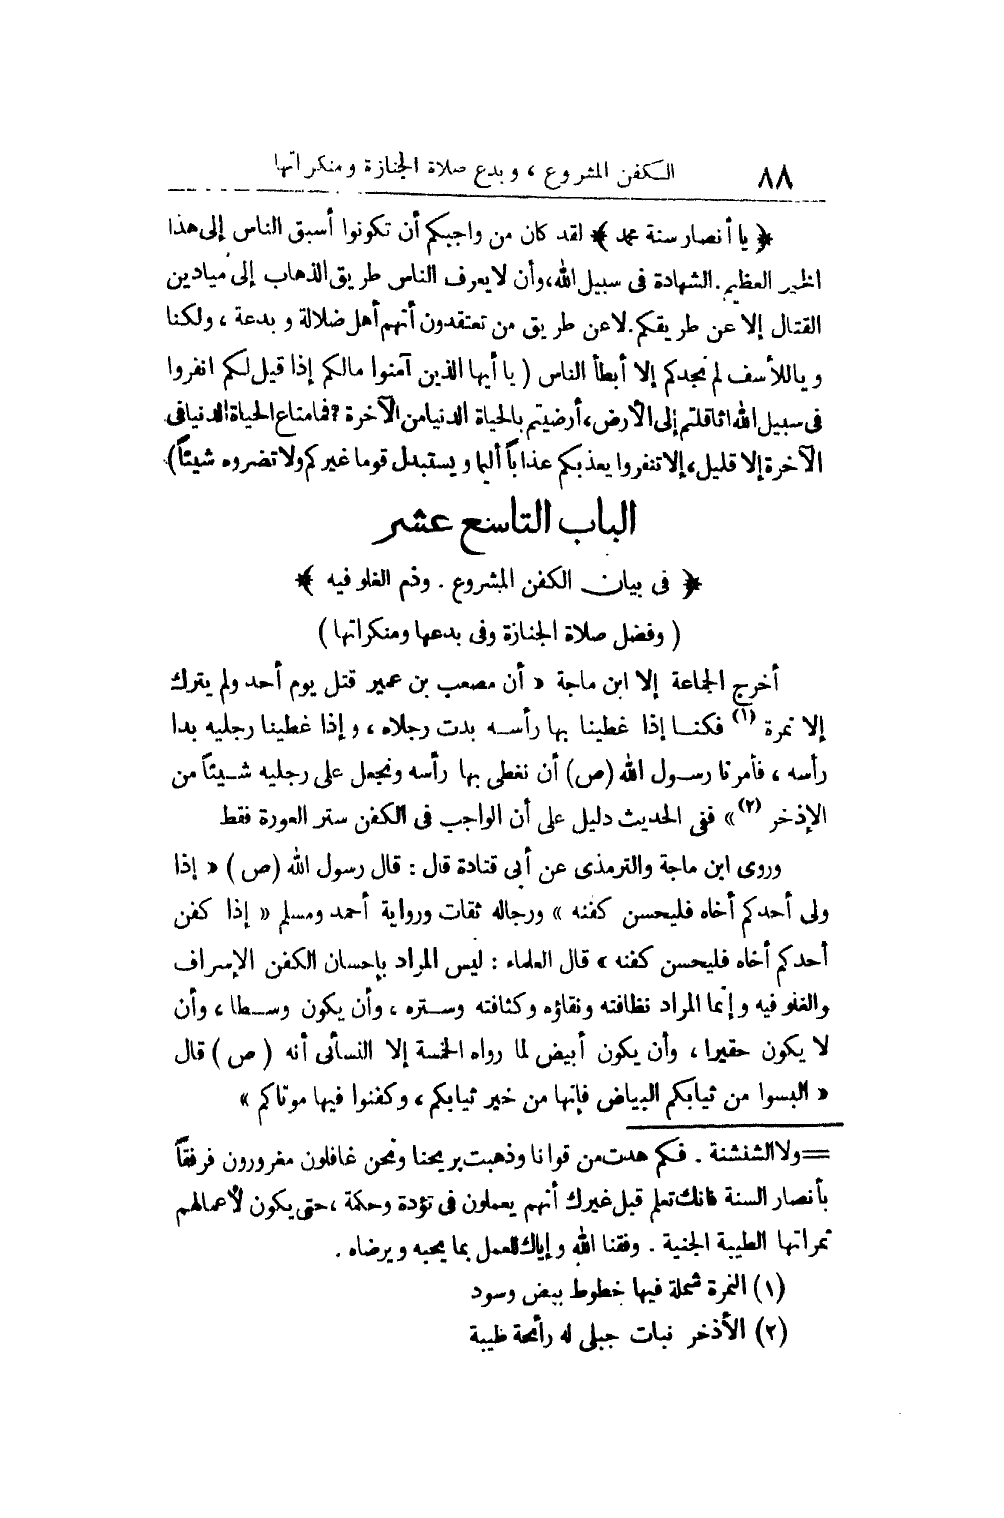 ٨٨ الكفن المشروع ، وبدع صلاة الجنازة ومنكراتها
﴿ يا أنصار سنة محمد ﴾ لقد كان من واجبكم أن تكونوا أسبق الناس إلى هذا
الخير العظيم . الشهادة فى سبيل الله ، وأن لا يعرف الناس طريق الذهاب إلى ميادين
القتال إلا عن طريقكم . لا عن طريق من تعتقدون أنهم أهل ضلالة وبدعة ، ولكنا
وياللأسف لم نجدكم إلا أبطأ الناس ( يا أيها الذين آمنوا مالكم إذا قيل لكم انفروا
فى سبيل الله اثاقلتم إلى الأرض ، أرضيتم بالحياة الدنيا من الآخرة ؟ فما متاع الحياة الدنيا فى
الآخرة إلا قليل ، إلا تنفروا يعذبكم عذاباً أليما ويستبدل قوما غيركم ولا تضروه شيئاً )
الباب التاسع عشر
﴿ فى بيان الكفن المشروع . وذم الغلو فيه ﴾
( وفضل صلاة الجنازة وفى بدعها ومنكراتها )
أخرج الجماعة إلا ابن ماجة « أن مصعب بن عمير قتل يوم أحد ولم يترك
إلا نمرة (١) فكنا إذا غطينا بها رأسه بدت رجلاه ، وإذا غطينا رجليه بدا
رأسه ، فأمرنا رسول الله (ص) أن نغطى بها رأسه ونجعل على رجليه شيئاً من
الإذخر (٢) » ففى الحديث دليل على أن الواجب فى الكفن ستر العورة فقط
وروى ابن ماجة والترمذى عن أبى قتادة قال : قال رسول الله (ص) « إذا
ولى أحدكم أخاه فليحسن كفنه » ورجاله ثقات ورواية أحمد ومسلم « إذا كفن
أحدكم أخاه فليحسن كفنه » قال العلماء : ليس المراد بإحسان الكفن الإسراف
والغلو فيه وإنما المراد نظافته ونقاؤه وكثافته وستره ، وأن يكون وسطا ، وأن
لا يكون حقيرا ، وأن يكون أبيض لما رواه الخمسة إلا النسأئى أنه (ص) قال
« البسوا من ثيابكم البياض فإنها من خير ثيابكم ، وكفنوا فيها موتاكم »
= ولا الشنشنة . فكم هدت من قوانا وذهبت بريحنا ونحن غافلون مغرورون فرفقاً
بأنصار السنة فانك تعلم قبل غيرك أنهم يعملون فى تؤدة وحكمة ، حتى يكون لأعمالهم
ثمراتها الطيبة الجنية . وفقنا الله وإياك للعمل بما يحبه ويرضاه .
(١) النمرة شملة فيها خطوط بيض وسود
(٢) الأذخر نبات جبلى له رائحة طيبة